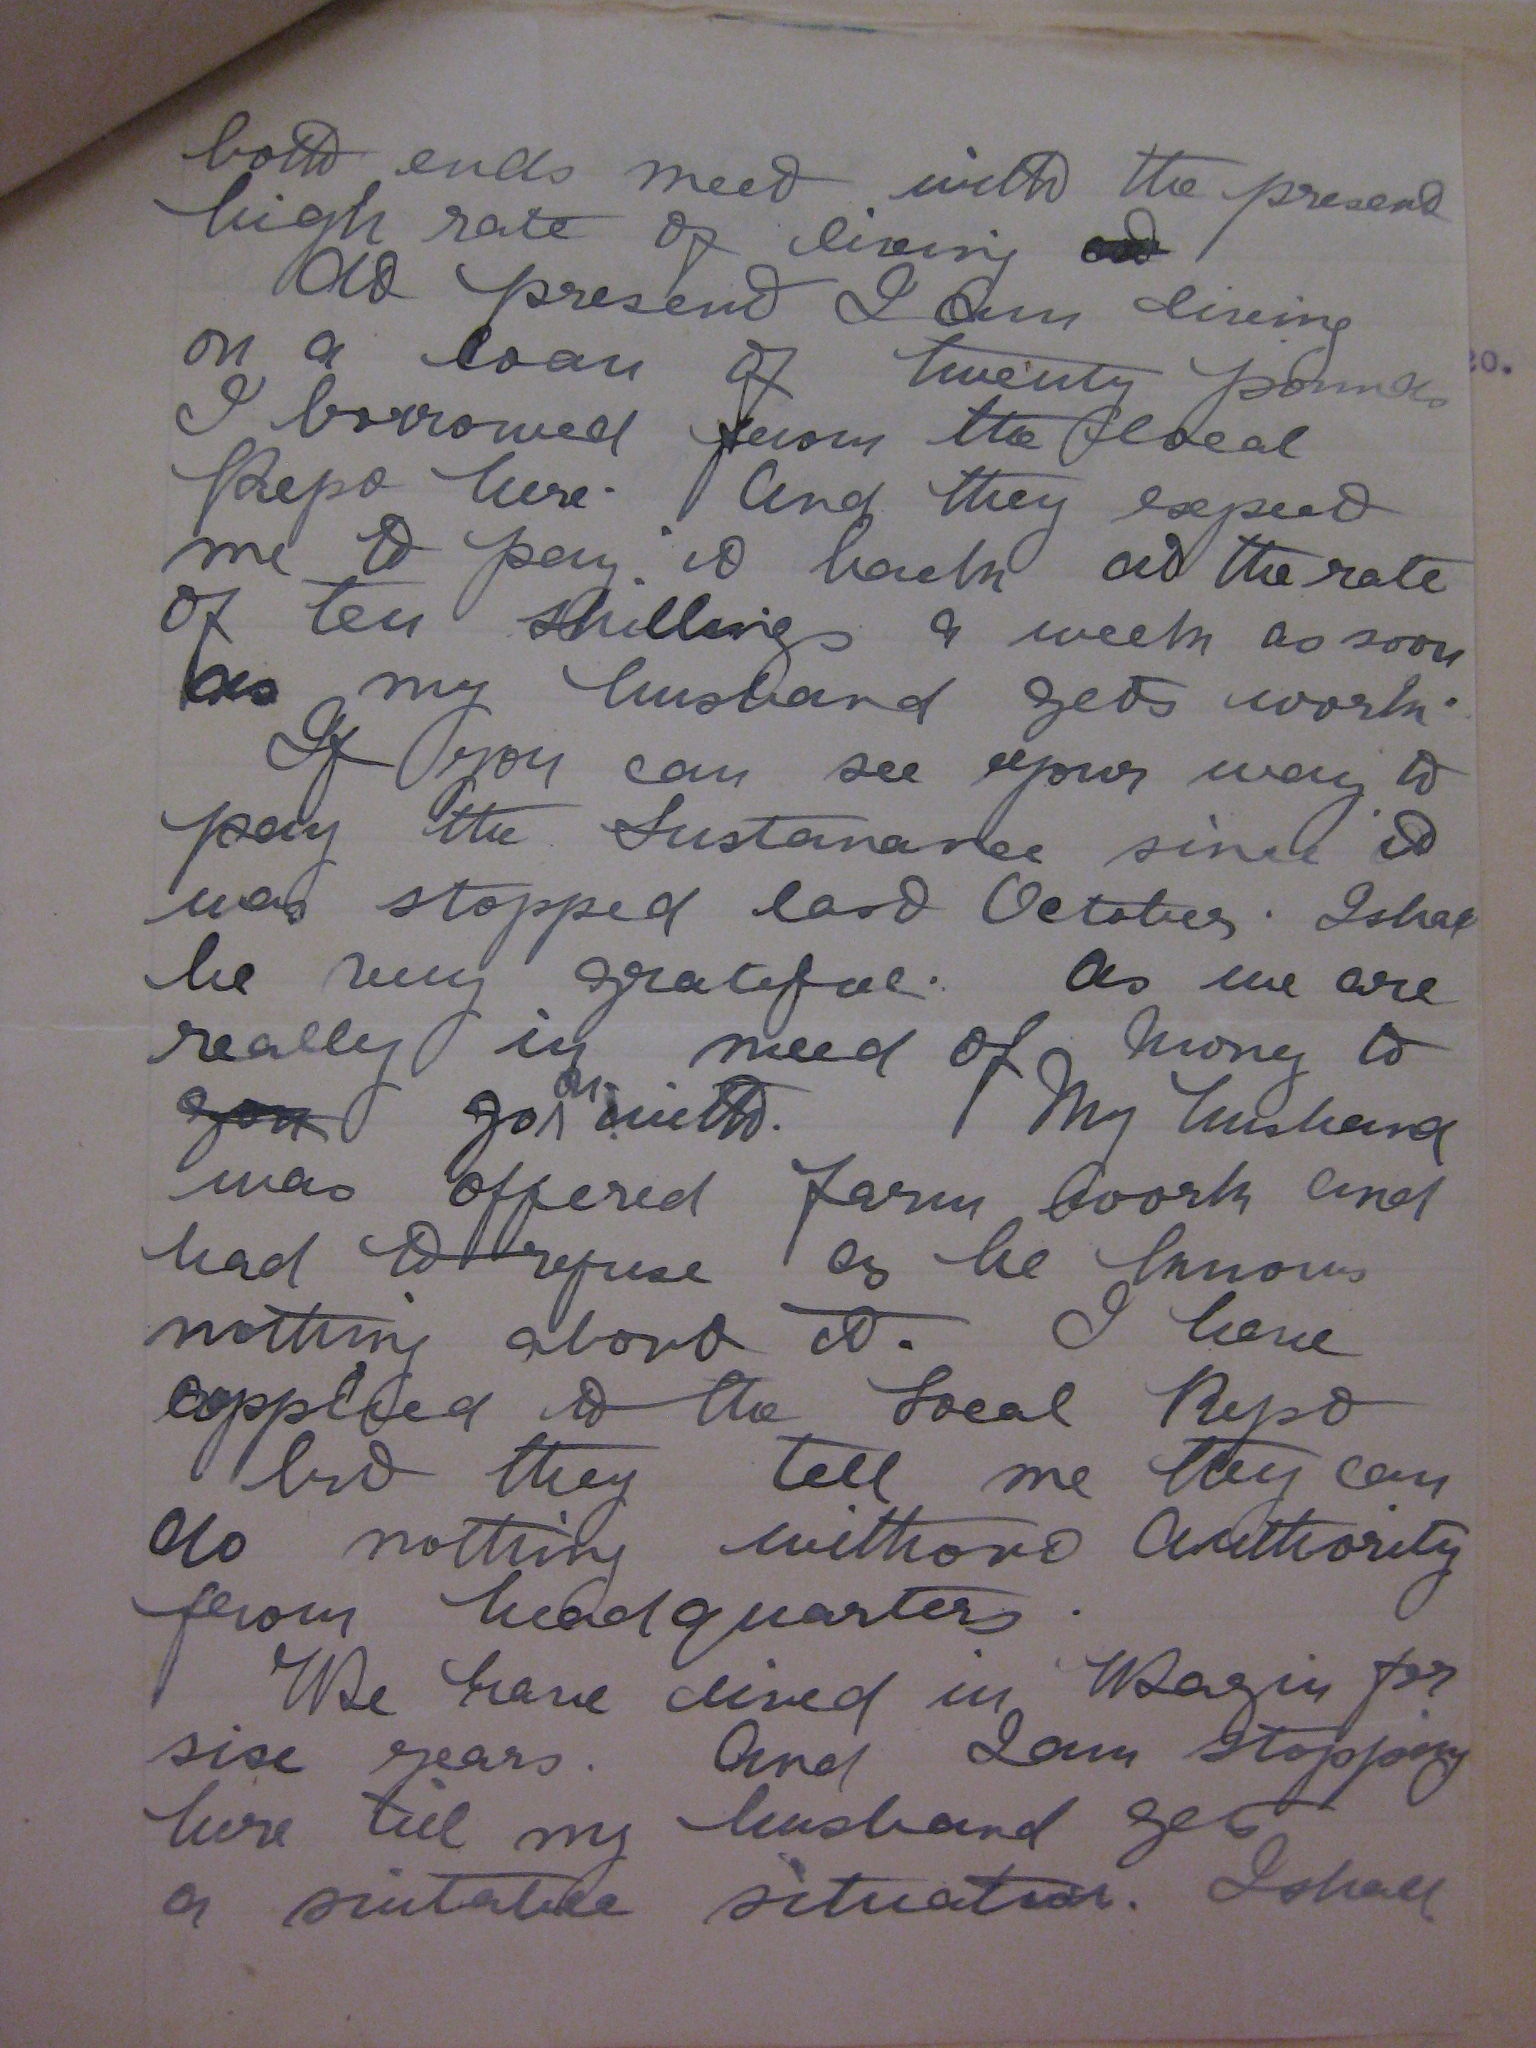 both ends meet with the present
high rate of living
At present I am living
on a loan of twenty pounds
I borrowed from the local
Rept here. And they expect
me to pay it back at the rate
of ten shillings a week as soon
as my husband gets work.
If you can see your way to
pay the Sustanance since it
was stopped last October. I shall
be very grateful. as we are
really in need of Money to
gon go on with. My husband
was offered farm work and
had to refuse as he knows
nothing about it. I have
applied to the Local Rept
but they tell me they can
do nothing without Authority
from headquarters.
We have lived in Wagin for
six years. And I am stopping
here till my husband gets
a suitable situation. I shall
20.